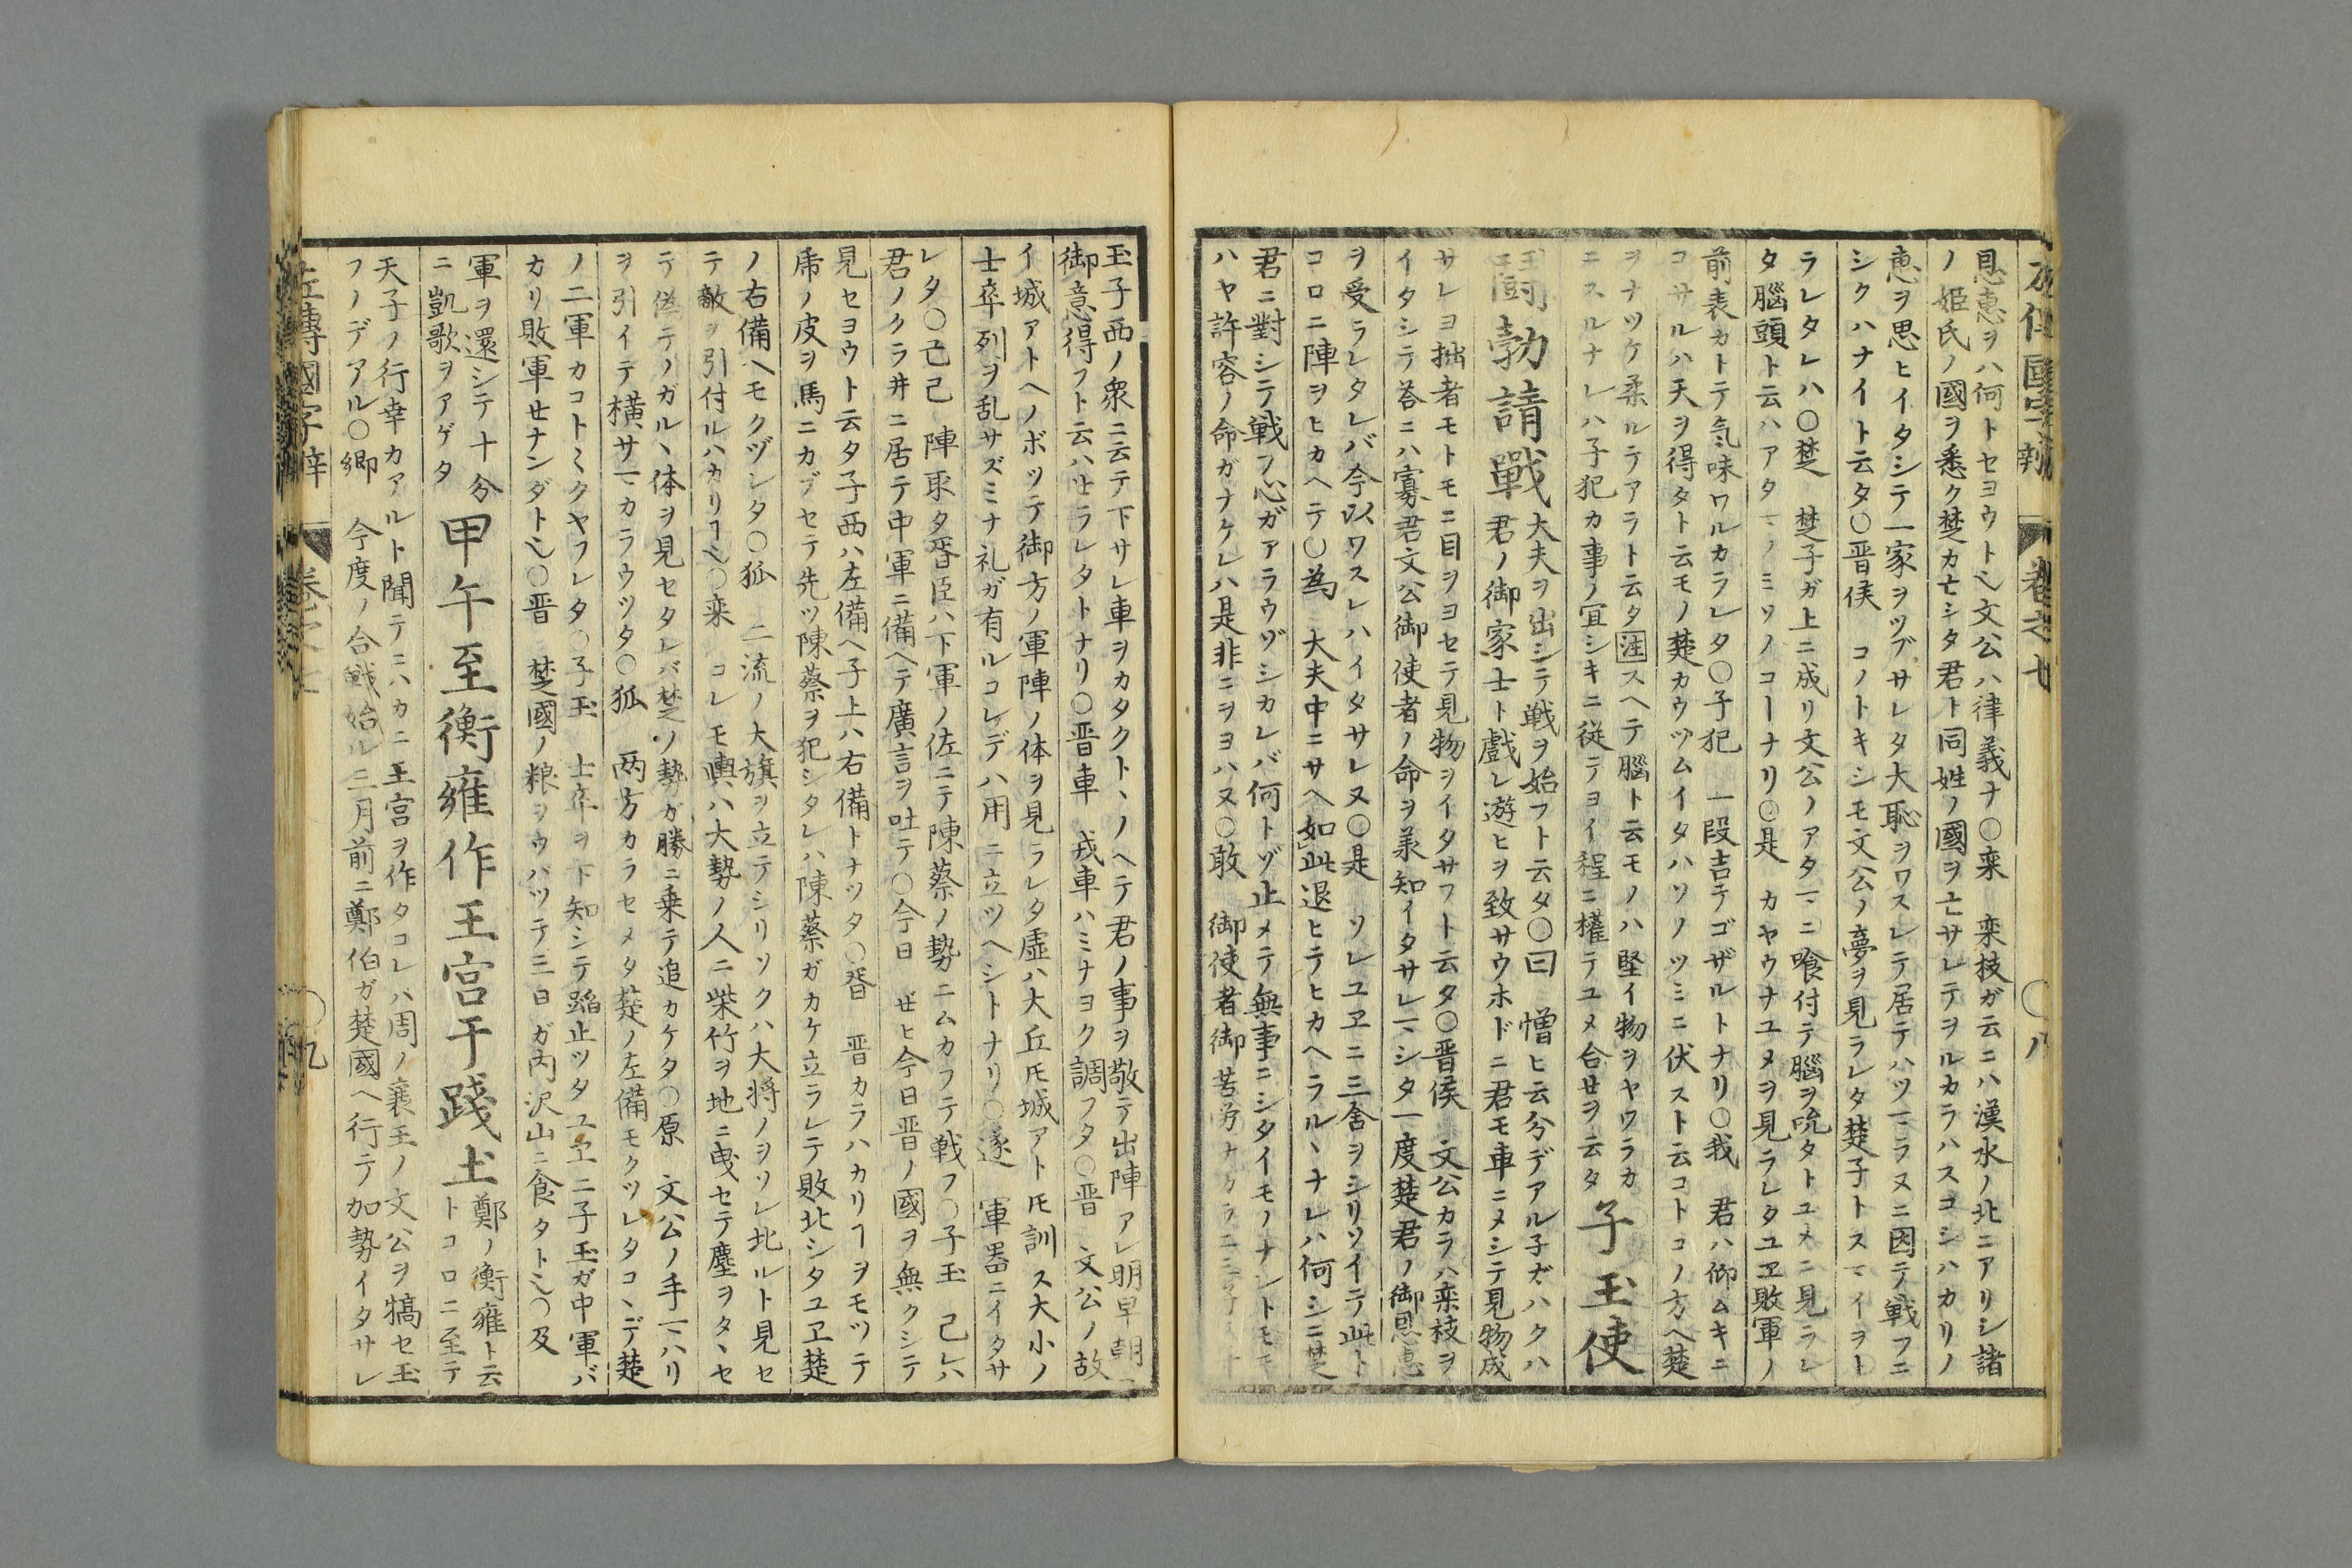 左傳國字辯 卷之七 〇八
恩惠ヲハ何トセヨウト〻文公ハ律義ナ〇栾 栾枝ガ云ニハ漢水ノ北ニアリシ諸
ノ姫氏ノ國ヲ悉ク楚カ亡シタ君ト同姓ノ國ヲ亡サレテヲルカラハスコシハカリノ
惠ヲ思ヒイタシテ一家ヲツブサレタ大恥ヲワスレテ居テハツマラヌニ因テ戦フニ
シクハナイト云タ〇晋侯 コノトキシモ文公ノ夢ヲ見ラレタ楚子トスマイヲト
ラレタレハ〇楚 楚子ガ上ニ成リ文公ノアタマニ喰付テ腦ヲ吮タトユメニ見ラレ
タ腦頭ト云ハアタマノミソノコーナリ〇是 カヤウナユメヲ見ラレタユヱ敗軍ノ
前表カトテ気味ワルカラレタ〇子犯 一段吉テゴザルトナリ〇我 君ハ仰ムキニ
コサルハ天ヲ得タト云モノ楚カウツムイタハソノツミニ伏スト云コトコノ方ヘ楚
ヲナツケ柔ルテアラト云タ注スヘテ腦ト云モノハ堅イ物ヲヤワラカ
ニスルナレハ子犯カ事ノ宜シキニ従テヨイ程ニ權テユメ合セヲ云タ 子玉使
鬪勃請戰 大夫ヲ出シテ戦ヲ始フト云タ〇曰 憎ヒ云分デアル子玉ハクハ
君ノ御家士ト戲レ遊ヒヲ致サウホドニ君モ車ニメシテ見物成
サレヨ拙者モトモニ目ヲヨセテ見物ヲイタサフト云タ〇晋侯 文公カラハ栾枝ヲ
イタシテ荅ニハ寡君文公御使者ノ命ヲ承知イタサレマシタ一度楚君ノ御恩惠
ヲ受ラレタレバ今以ワスレハイタサレヌ〇是 ソレユヱニ三舍ヲシリソイテ此ト
コロニ陣ヲヒカヘテ〇為 大夫中ニサヘ如此退ヒテヒカヘラルヽナレハ何シニ楚
君ニ對シテ戦フ心ガアラウゾシカレバ何トゾ止メテ無事ニシタイモノナントモモ
ハヤ許容ノ命ガナケレハ是非ニヲヨハヌ〇敢 御使者御苦労ナカラ
玉子西ノ衆ニ云テ下サレ車ヲカタクトヽノヘテ君ノ事ヲ敬テ出陣アレ明早朝
御意得フト云ハせラレタトナリ〇晋車 戎車ハミナヨク調フタ〇晋 文公ノ故
イ城アトヘノボツテ御方ノ軍陣ノ体ヲ見ラレタ虚ハ大丘氏城アト氏訓ス大小ノ
士卒列ヲ乱サズミナ礼ガ有ルコレデハ用ニ立ツヘシトナリ〇遂 軍器ニイタサ
レタ〇己巳 陣取タ胥臣ハ下軍ノ佐ニテ陳蔡ノ勢ニムカフテ戦フ〇子玉 己レハ
君ノクラ井ニ居テ中軍ニ備ヘテ廣言ヲ吐テ〇今日 ぜヒ今日晋ノ國ヲ無クシテ
見セヨウト云タ子西ハ左備ヘ子上ハ右備トナツタ〇胥 晋カラハカリヿヲモツテ
乕ノ皮ヲ馬ニカブセテ先ツ陳蔡ヲ犯シタレハ陳蔡ガカケ立ラレテ敗北シタユヱ楚
ノ右備ヘモクヅシタ〇狐 二流ノ大旗ヲ立テシリソクハ大将ノヲソレ北ルト見セ
テ敵ヲ引付ルハカリヿ〻〇栾 コレモ輿ハ大勢ノ人ニ柴竹ヲ地ニ曳セテ塵ヲタヽセ
テ偽テノガルヽ体ヲ見セタレバ楚ノ勢ガ勝ニ乗テ追カケタ〇原 文公ノ手マハリ
ヲ引イテ横サマカラウツタ〇狐 両方カラセメタ楚ノ左備モクツレタコヽデ楚
ノ二軍カコトミクヤフレタ〇子玉 士卒ヲ下知シテ踏止ツタユヱニ子玉ガ中軍バ
カリ敗軍せナンダト〻〇晋 楚國ノ粮ヲウバツテ三日ガ内沢山ニ食タト〻〇及
軍ヲ還シテ十分
ニ凱歌ヲアゲタ 甲午至衡雍作王宮于踐土 鄭ノ衡雍ト云
トコロニ至テ
天子ノ行幸カアルト聞テニハカニ王宮ヲ作タコレハ周ノ襄王ノ文公ヲ犒セ玉
フノデアル〇郷 今度ノ合戦始ル三月前ニ鄭伯ガ楚國ヘ行テ加勢イタサレ
左傳國字辯 卷之七 〇九